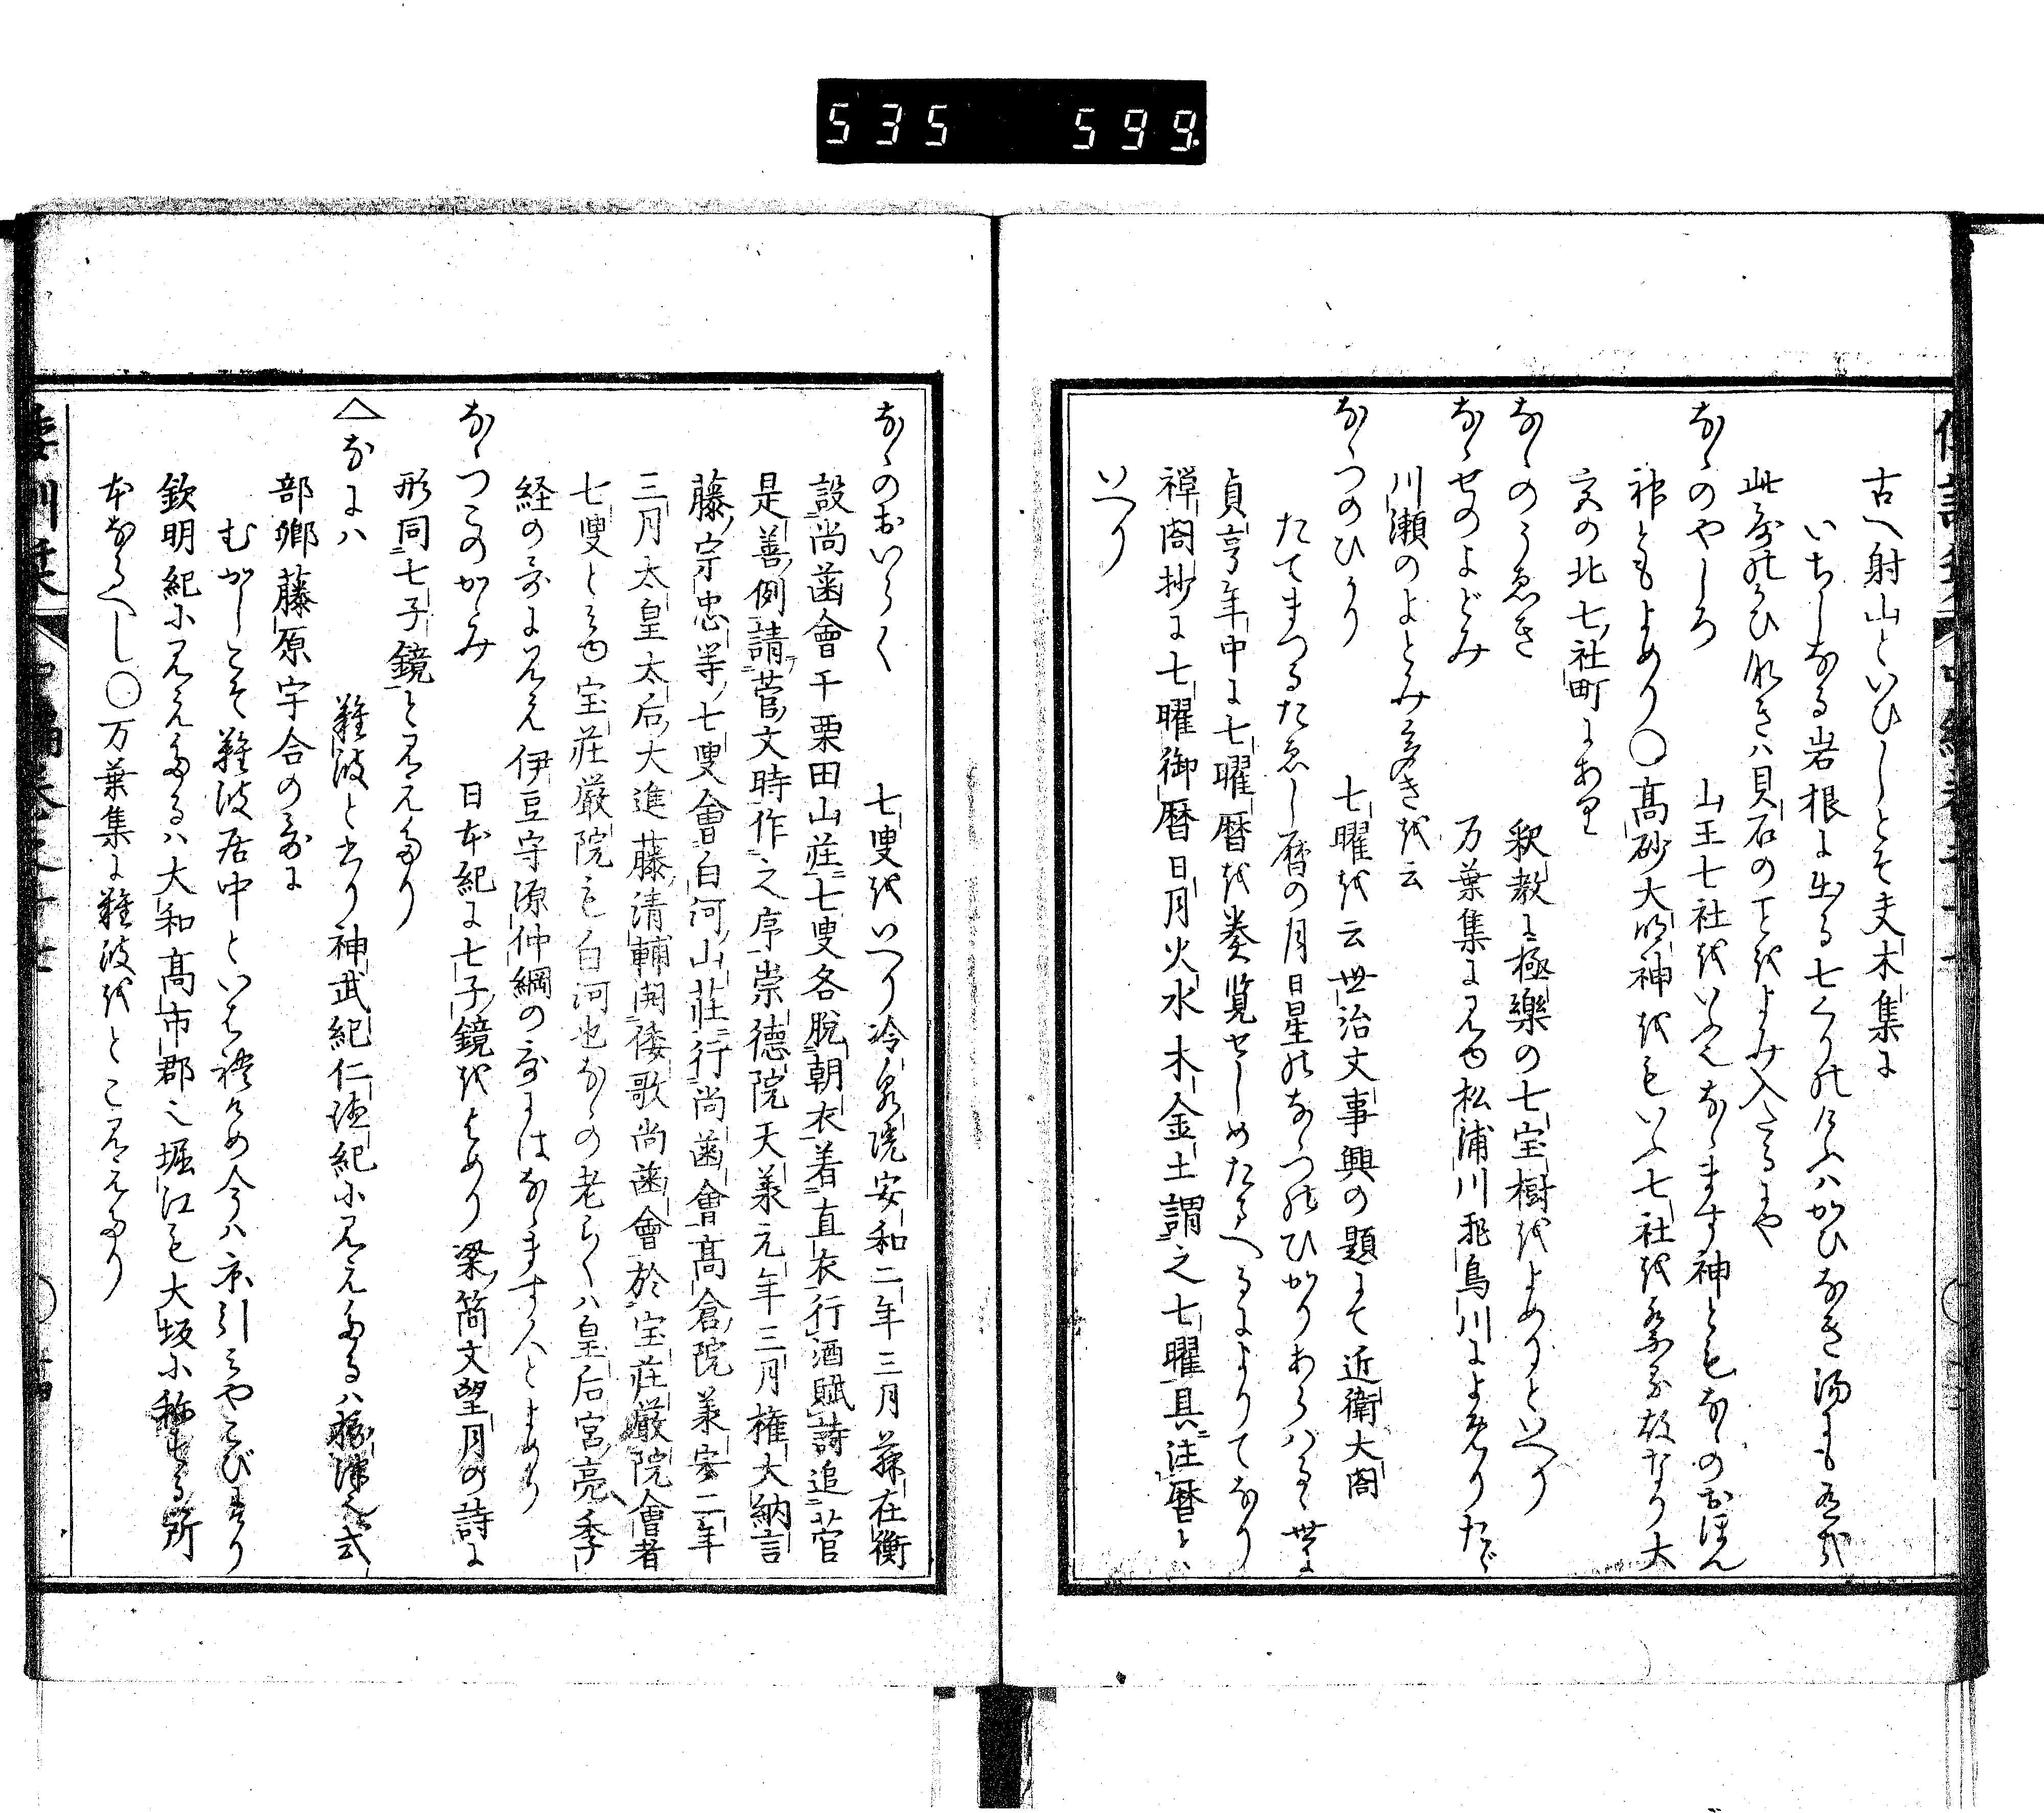 535 599
古へ射山といひしとそ夫木集に
いちしなる岩根に出る七くりのけふハかひなき湯にも有哉
此哥のかひなきハ貝石のことをよみ入たるにや
なゝのやしろ 山王七社をいふ也なゝます神ともなゝのおほん
神ともよめり〇高砂大明神をもいふ七社を祭る故なり大
宮の北七社町にあり
なゝのうゑき 釈教に極樂の七宝樹をよめりといへり
なゝせのよどみ 万葉集に見ゆ松浦川飛鳥川によめりたゞ
川瀬のよとみ多きを云
なゝつのひかり 七曜を云世治文事興の題にて近衛大閤
たてまつるたゑし暦の月日星のなゝつのひかりあらハるゝ世に
貞享年中に七曜暦を奏覧せしめたまへるによりてなり
禅閤抄に七曜御暦日月火水木金土謂之七曜具注暦と
いへり
なゝのおいらく 七叟をいへり冷泉院安和二年三月藤在衡
設尚歯會于粟田山莊七叟各脱朝衣着直衣行酒賦詩追菅
是善例請菅文時作之序崇德院天養元年三月權大納言
藤宗忠等七叟會白河山莊行尚歯會高倉院養安二年
三月太皇太后大進藤清輔開倭歌尚歯會於宝莊厳院會者
七叟と見ゆ宝莊厳院も白河也なゝの老らくハ皇后宮亮季
経の哥に見え伊豆守源仲綱の哥にはなゝます人とよめり
なゝつこのかゝみ 日本紀に七子鏡をよめり梁簡文望月の詩に
形同七子鏡と見えたり
△なには 難波と書り神武紀仁德紀に見えたるハ攝津也式
部卿藤原宇合の哥に
むかしこそ難波居中といはれけめ今ハ京引みやこびにけり
欽明紀に見えたるハ大和高市郡之堀江も大坂に称する所
本なるへし〇万葉集に難波をとこ見えたり